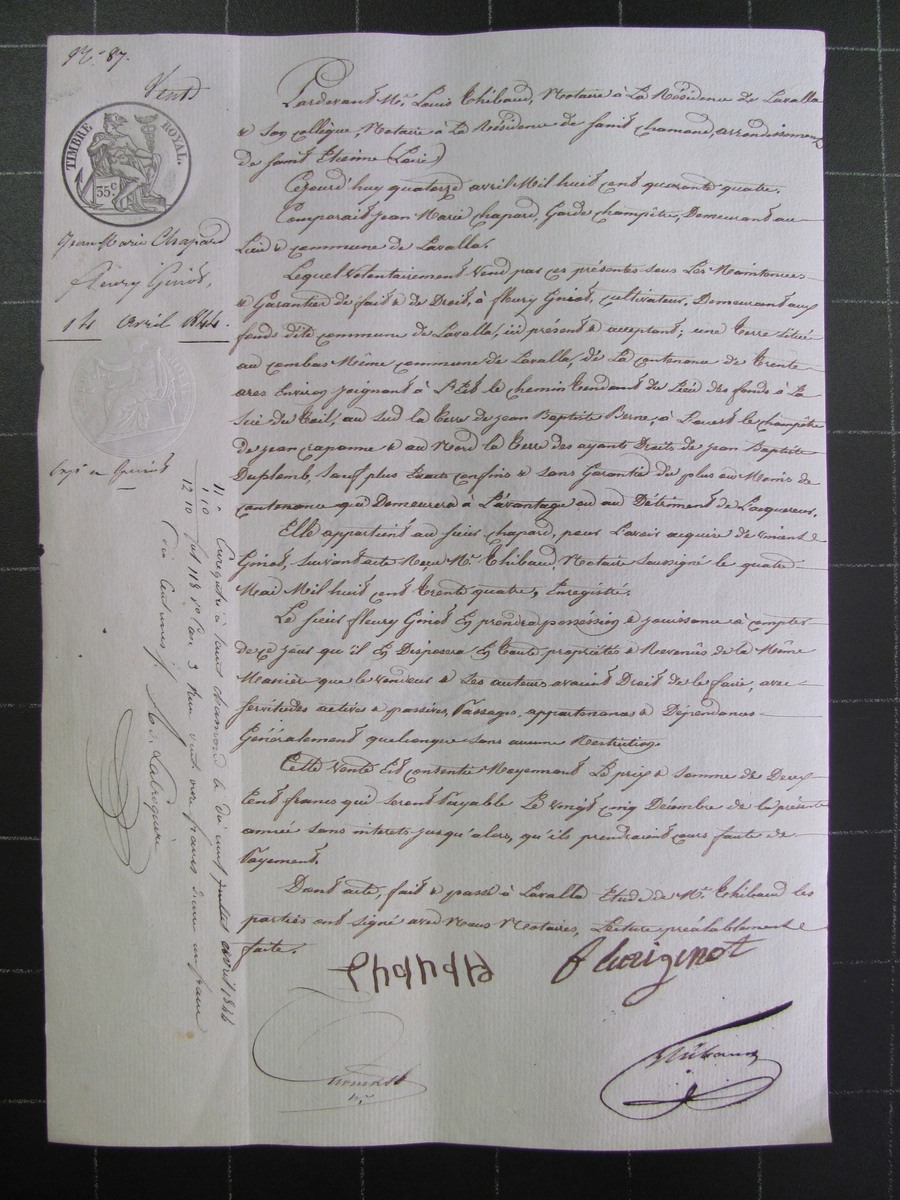 N.° 87.
Vente
TIMBRE ROYAL.
35.c
Jean Marie Chapard
à
Fleury Ginot,
14 avril 1844.
Exp.é en
Pardevant M.e Louis Thibaud, Notaire à La Résidence de Lavalla
& son collègue, Notaire à La Résidence de saint chamond, arrondissement
de saint Etienne (Loire)
Cejourd'huy quatorze avril Mil huit cent quarante quatre.
Comparait jean Marie chapard, Garde champêtre, Demeurant au
Lieu & commune de Lavalla.
Lequel volontairement vend par ces présentes sous Les Maintenues
& Garanties de fait & de Droit, à fleury Ginot, cultivateur, Demeurant aux
fonds dite commune de Lavalla, ici présent & acceptant; une terre située
au combas Même commune de Lavalla, de La contenance de trente
ares Environ joignant à L'Est le chemin tendant du Lieu des fonds à La
Scie du Toil, au sud la terre de jean Baptiste Berne, à L'ouest le champêtre
de jean crapanne & au Nord la terre des ayants Droits de jean Baptiste
Duplomb, sauf plus Exacts confins & sans Garantie du plus au Moins de
contenance qui Demeurera à L'avantage ou au Détriment de L'acquereur.
Elle appartient au sieur chapard, pour L'avoir acquise de vincent
Ginot, suivant acte Reçu M.e Thibaud, Notaire soussigné le quatre
Mai Mil huit cent trente quatre, Enregistré.
Le sieur fleury Ginot En prendra possession & jouissance à compter
de ce jour qu'il En Disposera En toute propriété & Revenus de la Même
Manière que le vendeur & Les auteurs avaient Droit de le faire, avec
servitudes actives & passives, Passages, appartenances & Dépendances
Généralement quelconque sans aucune Restriction.
Cette vente Est consentie Moyennant Le prix & somme de Deux
Cent francs qui seront Payable Le vingt cinq Décembre de la présente
année sans interets jusqu'alors, qu'ils prendraient cours faute de
Payement.
Dont acte, fait & passé à Lavalla Etude de M.e Thibaud les
parties ont signé avec Nous Notaires, Lecture préalablement
faite.
Chapard
fleurig inot
Thibaud
11 "
1 10
12 10
Enregistré à Saint chamond le dix neuf avril 1844
fol. 118 v.o Case 3 Reçu onze francs dixme un franc
dix centimes